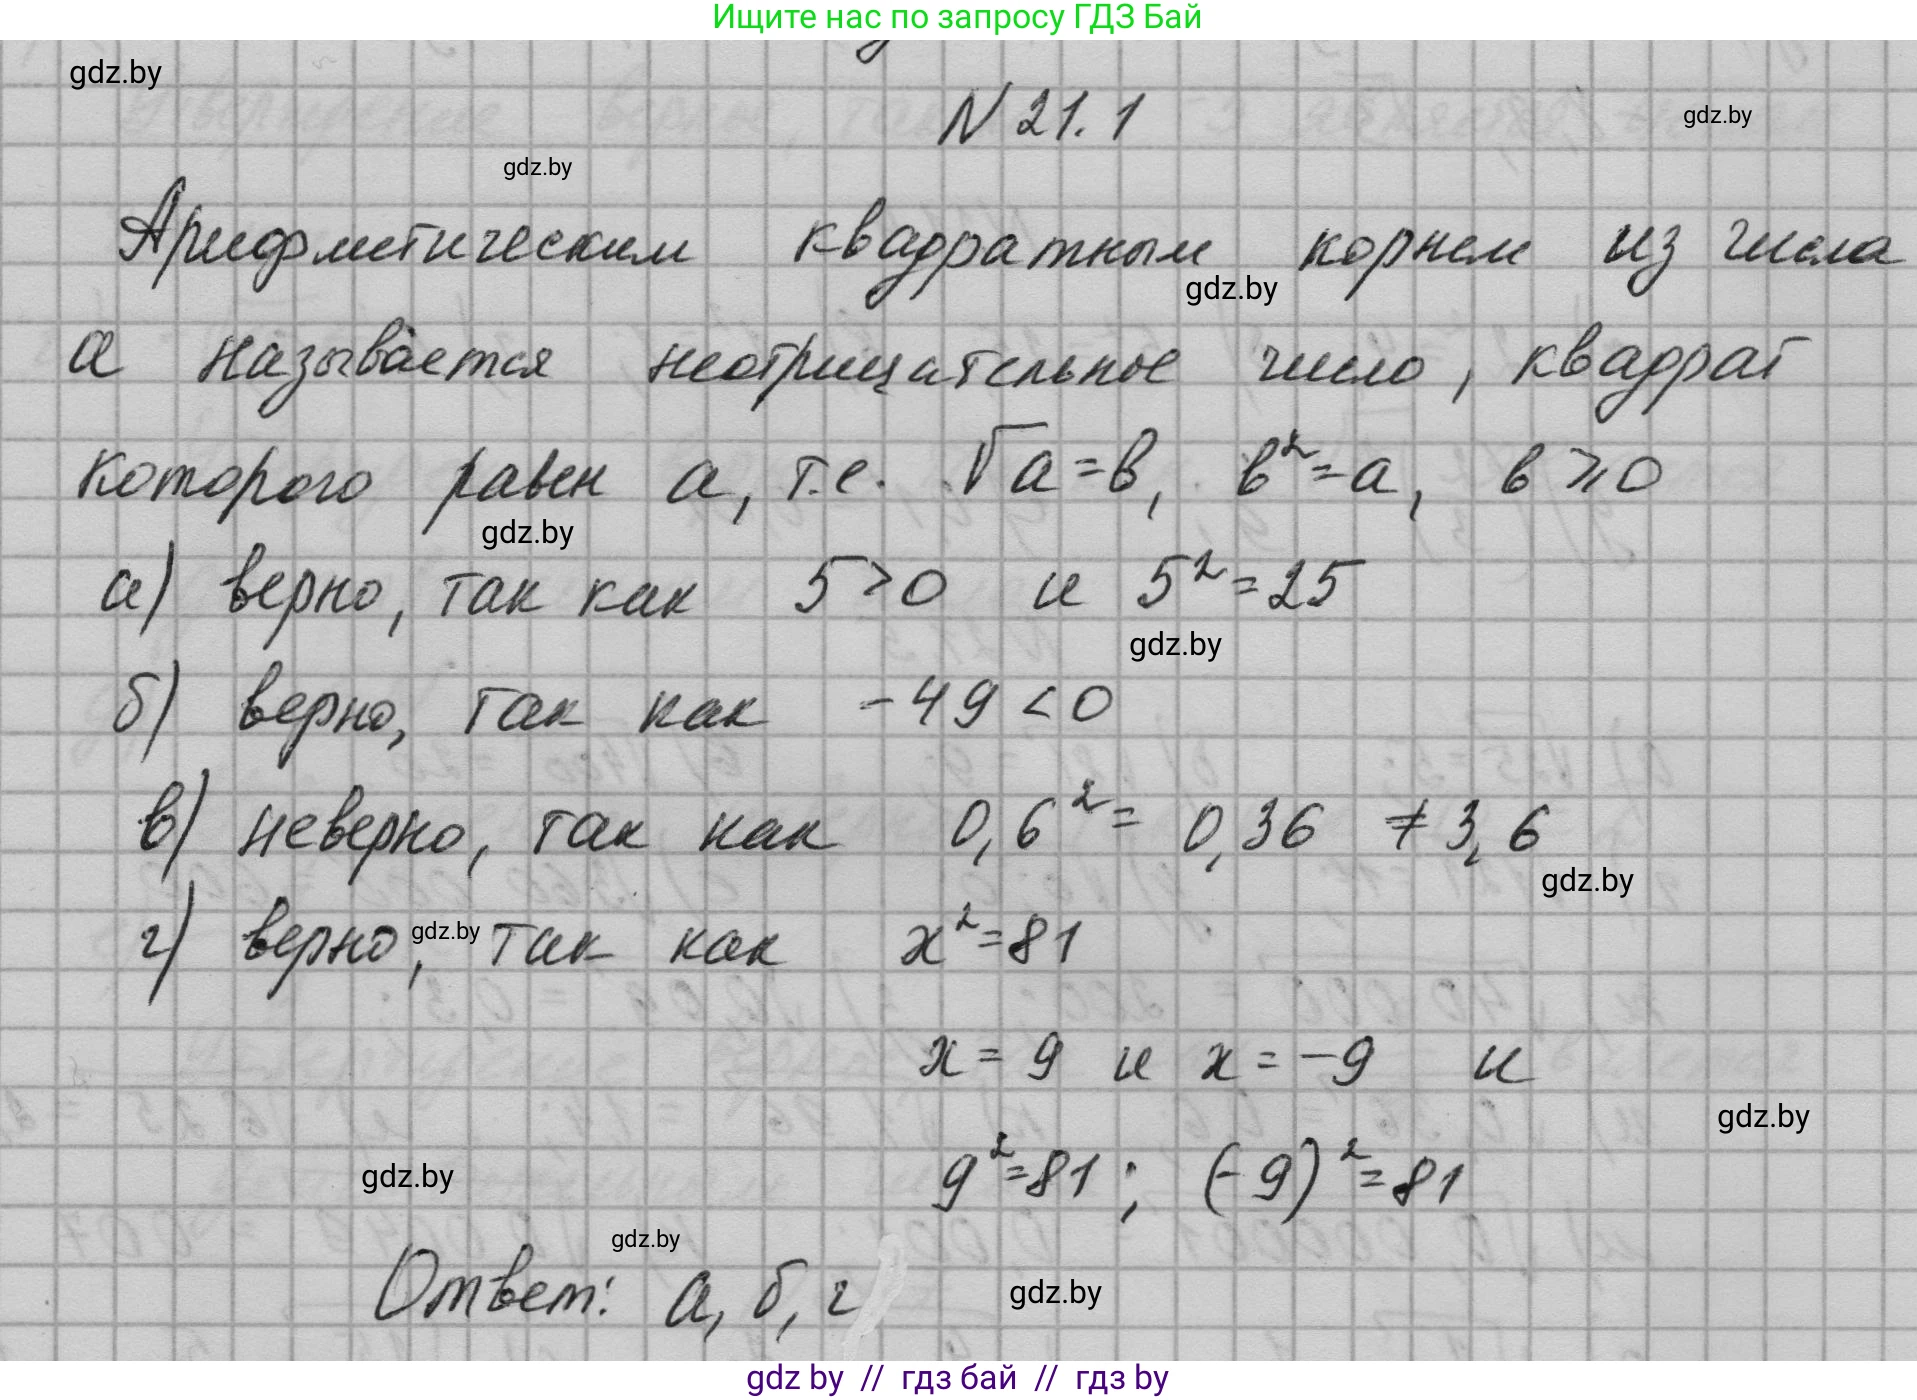 Ищите нас по запросу ГДЗ Бай
gdz.by
N 21.1
gdz.by
gdz.by
Арифметическим квадратным корнем из числа
gdz.by
а называется неотрицательное число, квадрат
которого равен а, т.е. √a = в, в² = а, в ⩾ 0
gdz.by
а) верно, так как 5 > 0 и 5² = 25
gdz.by
б) верно, так как -49 < 0
в) неверно, так как 0,6² = 0,36 ≠ 3,6
gdz.by
г) верно, так как x² = 81
gdz.by
x = 9 и x = -9 и
gdz.by
9² = 81; (-9)² = 81
gdz.by
gdz.by
Ответ: а, б, г
gdz.by
gdz by // гдз бай // гдз by